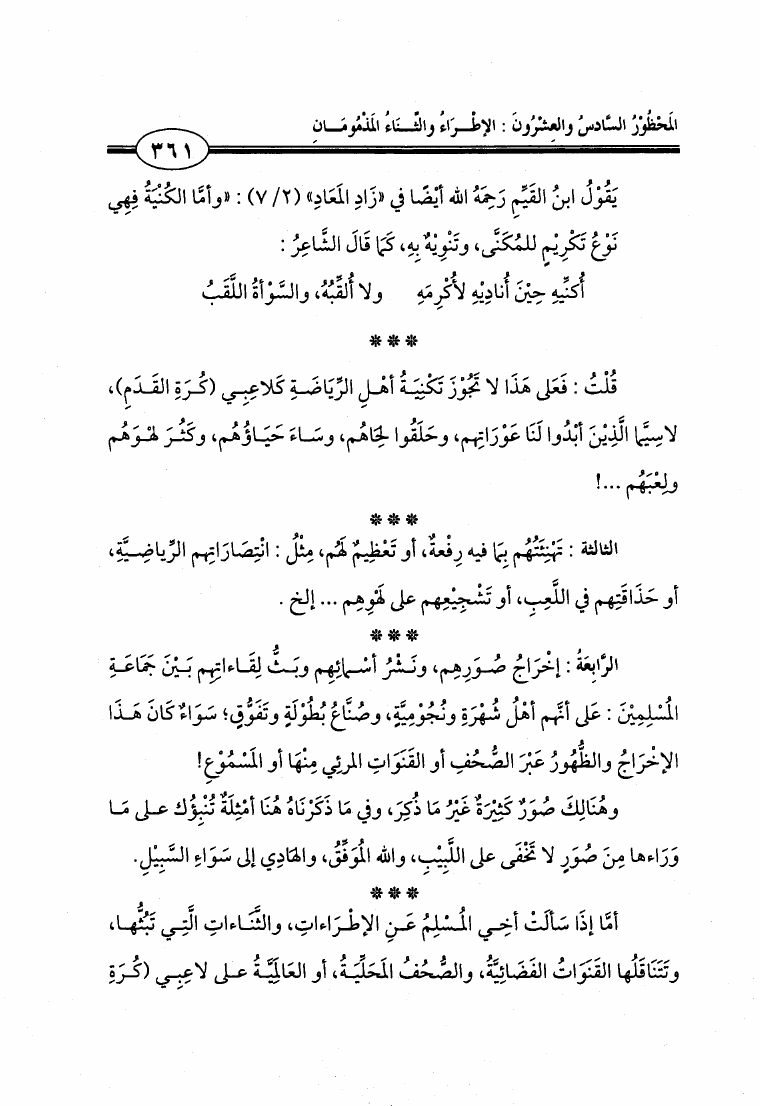 المَحْظُوْرُ السَّادسُ والعِشْرُونَ : الإطْـرَاءُ والثَّنَـاءُ المَذْمُومَـانِ
٣٦١
يَقُوْلُ ابنُ القَيِّمِ رَحِمَهُ الله أيْضًا في «زَادِ المَعَادِ» (٢/ ٧) : «وأمَّا الكُنْيَةُ فِهِي
نَوْعُ تَكْرِيْمٍ للمُكَنَّى، وتَنْوِيْهٌ بِهِ، كَمَا قَالَ الشَّاعِرُ :
أُكنِّيهِ حِيْنَ أُنادِيْهِ لأُكْرِمَهِ ولا أُلقِّبُهُ، والسَّوْأةُ اللَّقَبُ
***
قُلْتُ : فَعَلى هَذَا لا تَجُوْزَ تَكْنِيَةُ أهْلِ الرِّيَاضَـةِ كَلاعِبِـي (كُـرَةِ القَـدَمِ)،
لاسِيَّما الَّذِيْنَ أبْدُوا لَنَا عَوْرَاتِهم، وحَلَقُوا لِحَاهُم، وسَـاءَ حَيَـاؤُهُم، وكَثُـرَ لَهْـوَهُم
ولِعْبَهُم ...!
***
الثالثة : تَهْنِئَتُهُم بِمَا فيه رِفْعةٌ، أو تَعْظِيمٌ لَهُم، مِثْلُ : انْتِصَارَاتِهم الرِّياضِـيَّةِ،
أو حَذَاقَتِهم في اللَّعِبِ، أو تَشْجِيْعِهم على لَهْوِهِم ... إلخ .
***
الرَّابِعَةُ : إخْرَاجُ صُـوَرِهِم، ونَـشْرُ أسْـمائِهم وبَـثُّ لِقَـاءاتِهم بَـيْنَ جَمَاعَـةِ
المُسْلِمِيْنَ : عَلى أنَّهم أهْلُ شُهْرَةٍ ونُجُوْمِيَّةٍ، وصُنَّاعُ بُطُوْلَةٍ وتَفَوُّقٍ؛ سَوَاءٌ كَانَ هَـذَا
الإخْرَاجُ والظُّهُورُ عَبْرَ الصُّحُفِ أو القَنَوَاتِ المرئي مِنْهَا أو المَسْمُوْعِ!
وهُنَالِكَ صُوَرٌ كَثِيْرَةٌ غَيْرُ مَا ذُكِرَ، وفي مَا ذَكَرْنَاهُ هُنَا أمْثِلَةٌ تُنْبِؤُك عـلى مَـا
وَرَاءها مِنَ صُوَرٍ لا تَخْفَى على اللَّبِيْبِ، والله المُوَفِّقُ، والهَادِي إلى سَوَاءِ السَّبِيْلِ.
***
أمَّا إذَا سَألَتْ أخِـي المُـسْلِمُ عَـنِ الإطْـرَاءاتِ، والثَّنَـاءاتِ الَّتِـي تَبُثُّهـا،
وتَتَنَاقَلُها القَنَوَاتُ الفَضَائِيَّةُ، والصُّحُفُ المَحَلِّيَـةُ، أو العَالمِيَّـةُ عـلى لاعِبِـي (كُـرَةِ